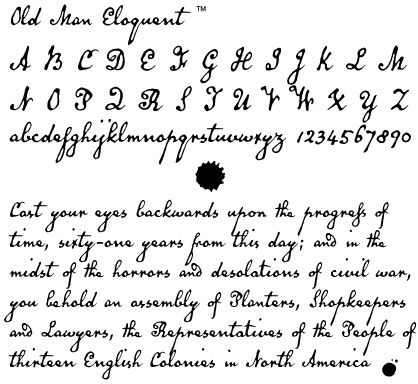 Old Man Eloquent ™
A B C D E F G H I J K L M
N O P Q R S T U V W X Y Z
abcdefghijklmnopqrstuvwxyz 1234567890
Cast your eyes backwards upon the progreſs of
time, sixty-one years from this day; and in the
midst of the horrors and desolations of civil war,
you behold an assembly of Planters, Shopkeepers
and Lawyers, the Representatives of the People of
thirteen English Colonies in North America